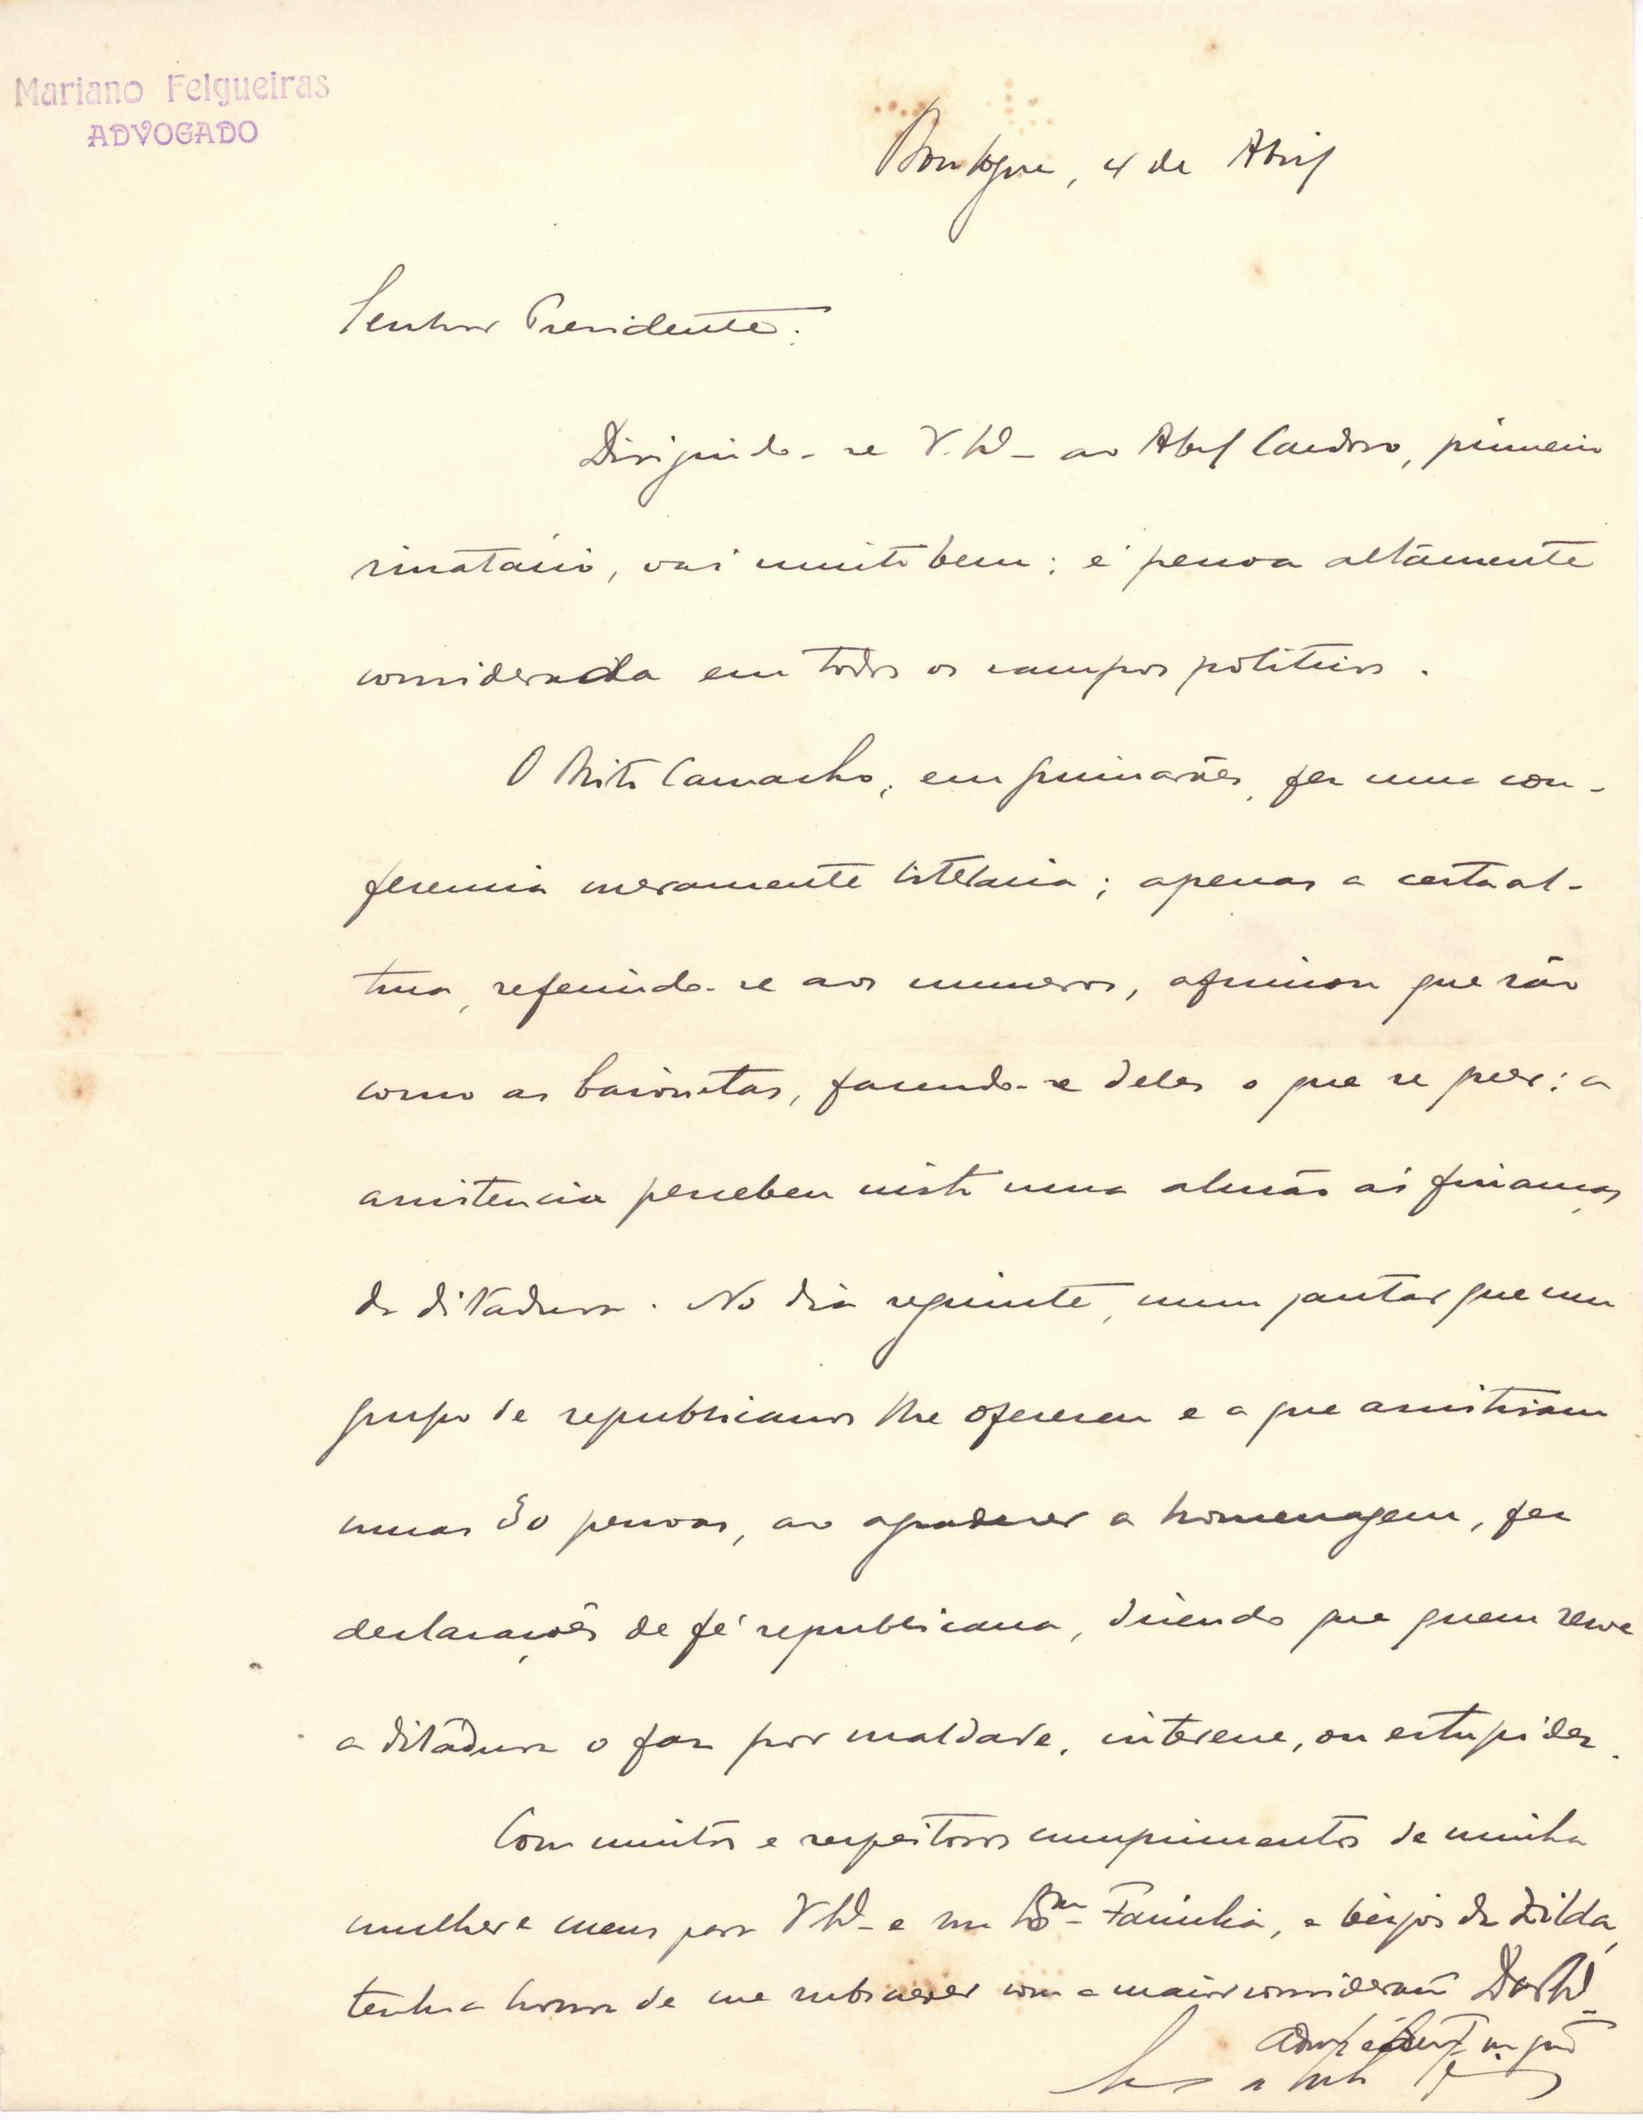 Mariano Felgueiras
ADVOGADO
Boulogne, 4 de Abril
Senhor Presidente:
Dirigindo-se V. Ex- ao Abel Cardoso, primeiro
sinatário, vai muito bem; é pessoa altamente
considerada em todos os campos politicos.
O Brito Camacho, em Guimarães, fez uma con-
ferencia meramente literaria; apenas a certa al-
tura, referindo-se aos numeros, afirmou que são
como as baionetas, fazendo-se deles o que se quer: a
assistencia percebeu nisto uma alusão ás finanças
da ditadura. No dia seguinte, num jantar que um
grupo de republicanos lhe ofereceu e a que assistiram
umas 30 pessoas, ao agradecer a homenagem, fez
declarações de fé republicana, dizendo que quem serve
a ditadura o faz por maldade, interesse, ou estupidez.
Com muitos e respeitosos cumprimentos de minha
mulher e meus para V Ex- e sua Familia, e beijos da Zilda,
tenho a honra de me subscrever com a maior consideração